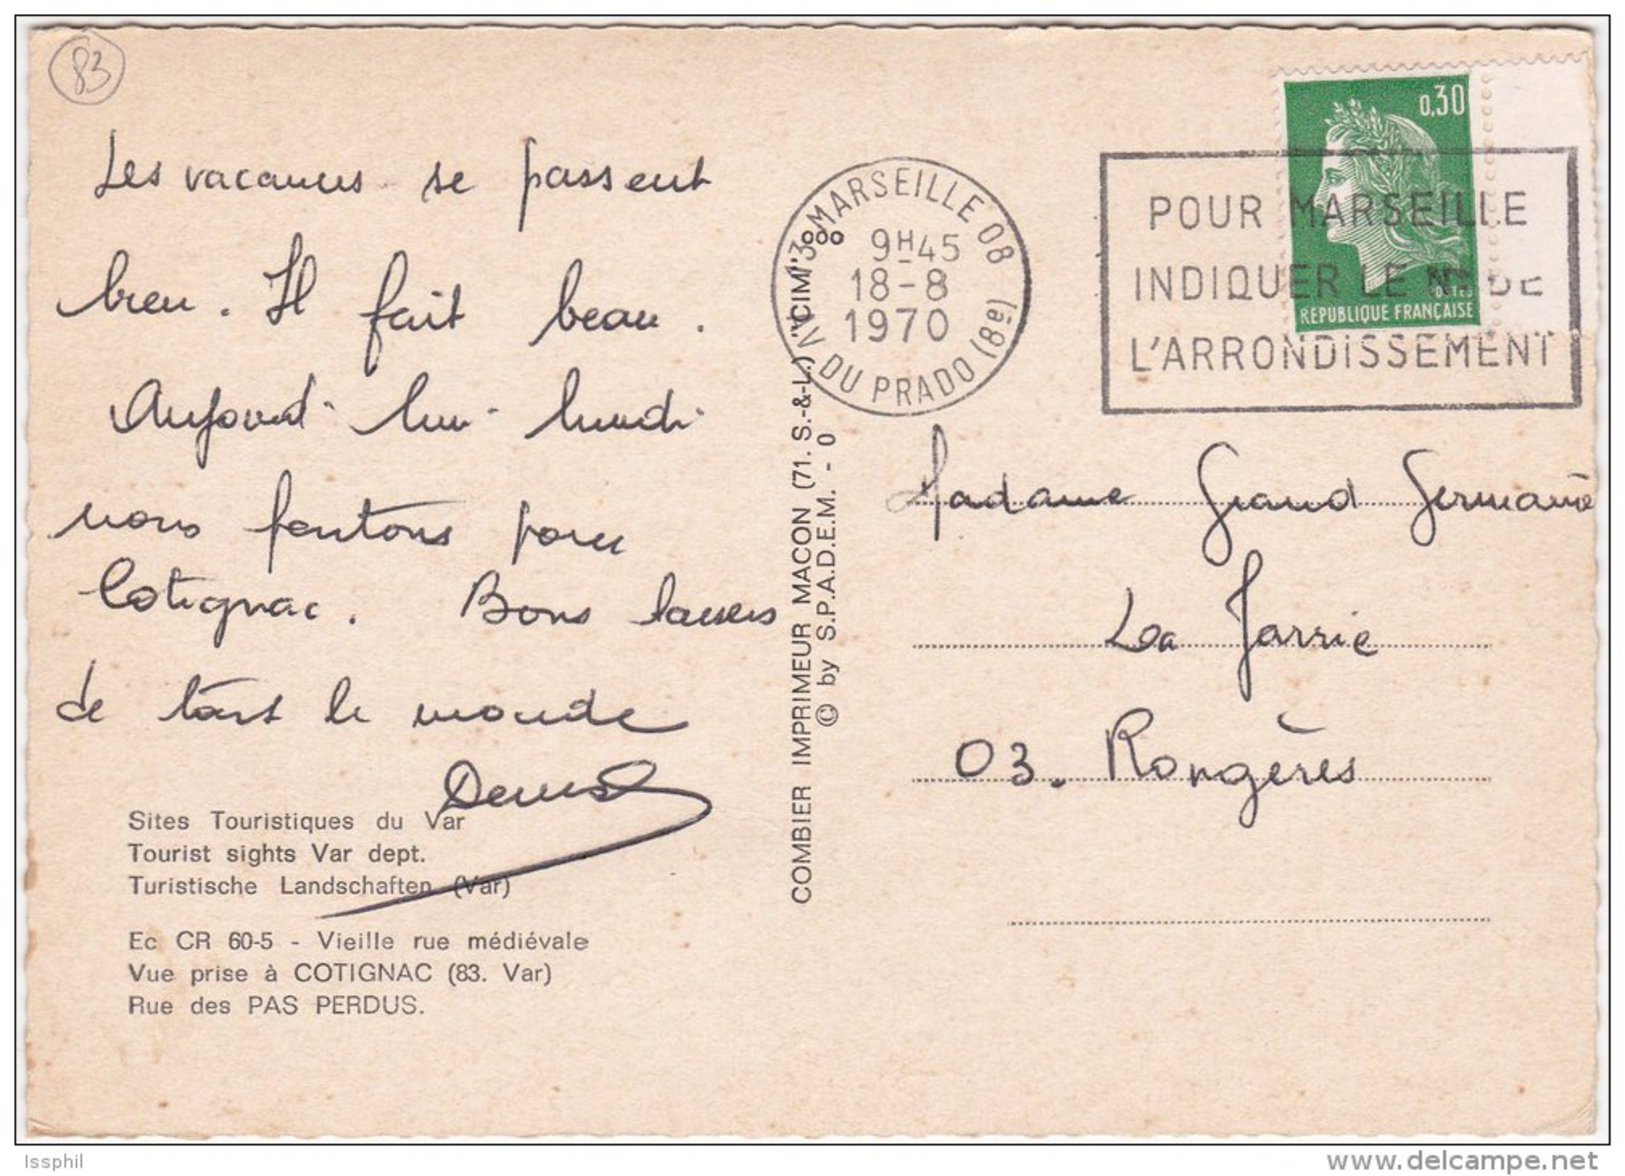 83
Les vacances se passent
bien. Il fait beau.
Aujourd'hui lundi
nous partons pour
Cotignac. Bons baisers
de tout le monde
Sites Touristiques du Var
Tourist sights Var dept.
Turistische Landschaften (Var)
Ec CR 60-5 - Vieille rue médiévale
Vue prise à COTIGNAC (83. Var)
Rue des PAS PERDUS.
COMBIER IMPRIMEUR MACON (71. S.-&-L.) "CIM"
© by S.P.A.D.E.M. - 0
13 MARSEILLE 08
AV. DU PRADO (8è)
000 9H45
18-8
1970
POUR MARSEILLE
INDIQUER LE No DE
L'ARRONDISSEMENT
0,30
POSTES
REPUBLIQUE FRANÇAISE
Madame Grand Germaine
La Jarrie
03. Rongères
Issphil
www.delcampe.net